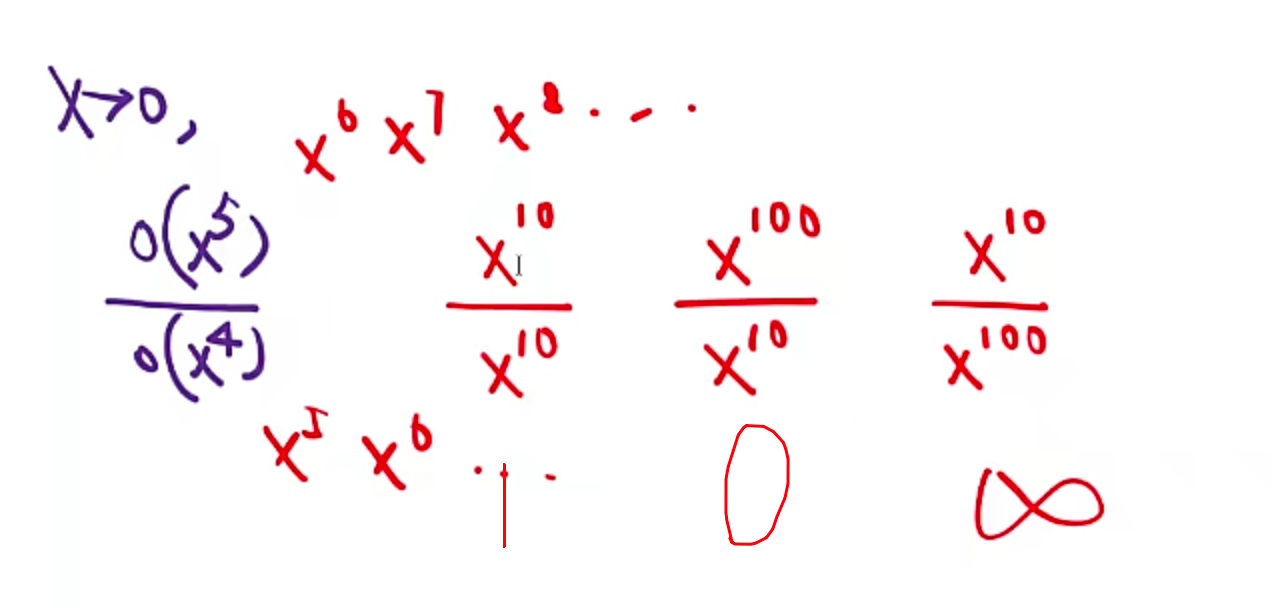 x→0,
x⁶ x⁷ x⁸ . - .
o(x⁵)/o(x⁴) x¹⁰/x¹⁰ x¹⁰⁰/x¹⁰ x¹⁰/x¹⁰⁰
x⁵ x⁶ . . .
1 0 ∞